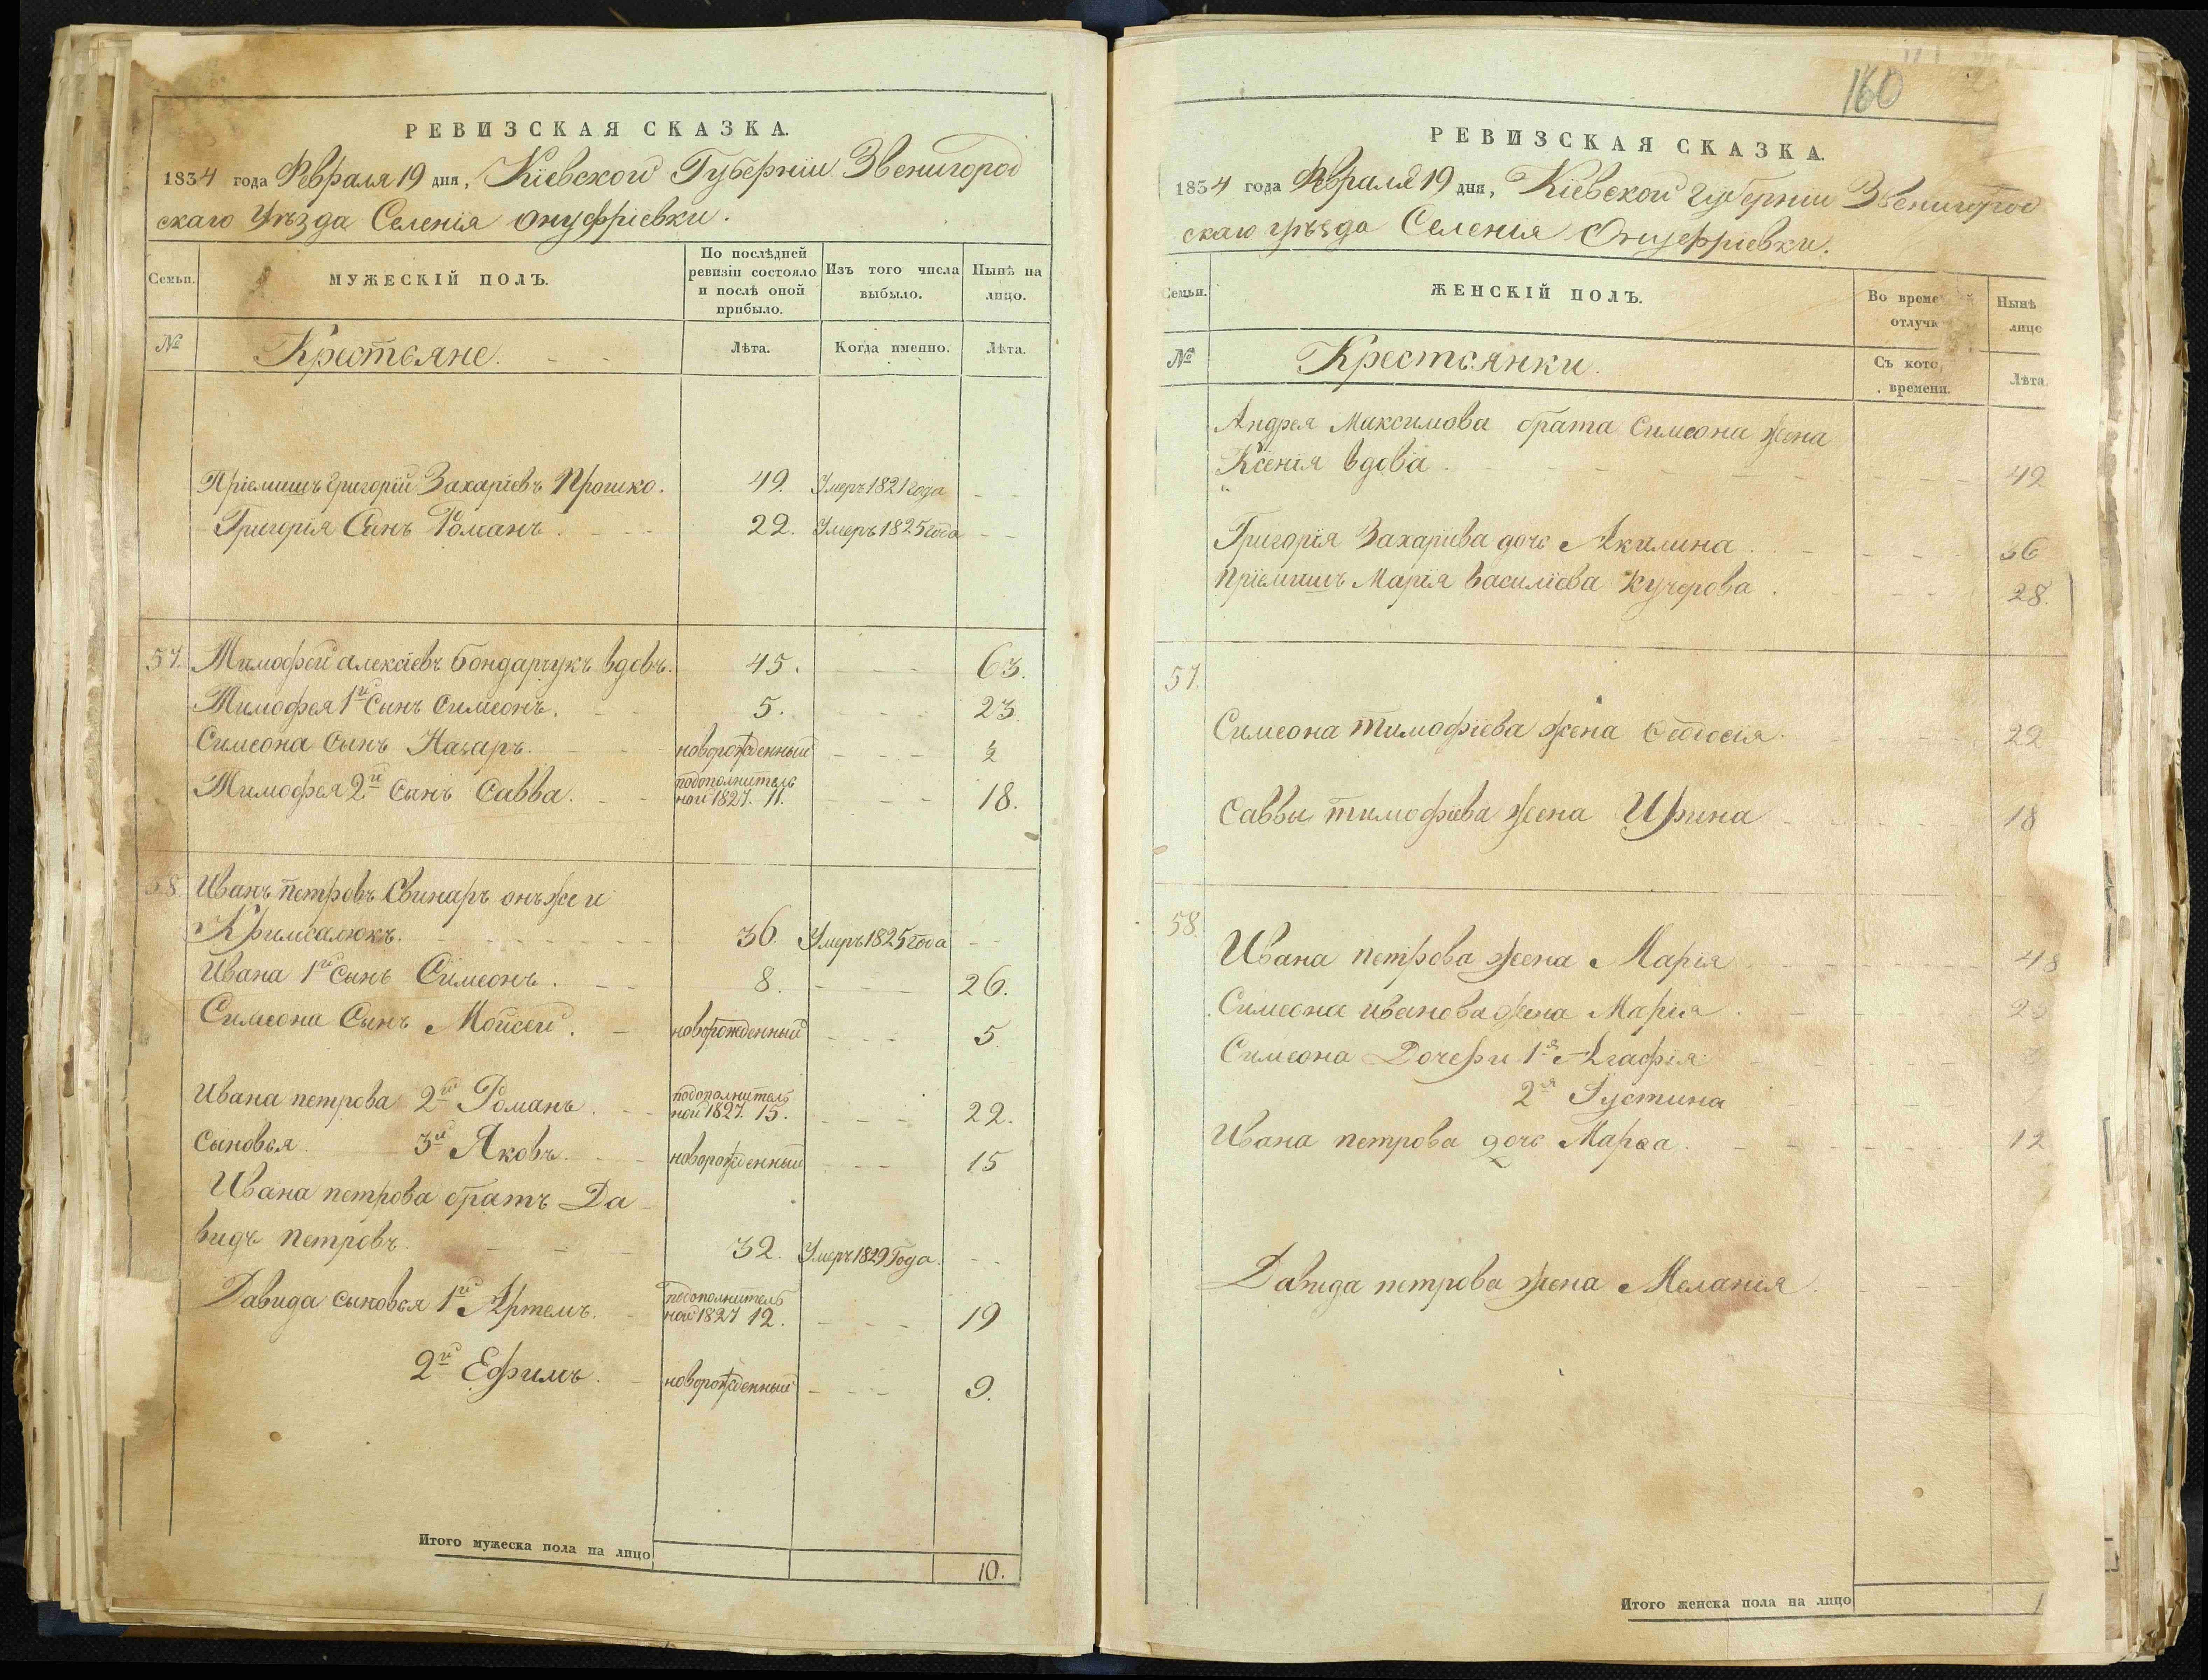 РЕВИЗСКАЯ СКАЗКА.
1834 года Февраля 19 дня, Кіевской Губерніи Звенигород
скаго Уѣзда Селенія Онуфріевки.
Семьи.
МУЖЕСКІЙ ПОЛЪ.
По послѣдней ревизіи состояло и послѣ оной прибыло.
Изъ того числа выбыло.
Нынѣ на лицо.
№
Крестьяне.
Лѣта.
Когда именно.
Лѣта.
Пріемишъ Григорій Захаріевъ Прошко. 49. Умеръ 1821 года
Григорія Сынъ Романъ. 22. Умеръ 1825 года
57. Тимофей Алексіевъ Бондарчукъ вдовъ. 45. 63.
Тимофея 1й Сынъ Симеонъ. 5. 23.
Симеона Сынъ Назаръ. новорожденный
Тимофея 2й Сынъ Савва. подополнитель
ной 1827. 11. 18.
58. Иванъ Петровъ Свинаръ онъ же и
Кримсалюкъ. 36. Умеръ 1825 года
Ивана 1й Сынъ Симеонъ. 8. 26.
Симеона Сынъ Мойсей. новорожденный 5.
Ивана Петрова 2й Романъ. подополнитель
ной 1827. 15. 22.
Сыновья 3й Яковъ. новорожденный 15
Ивана Петрова братъ Да
видъ Петровъ. 32. Умеръ 1829 Года.
Давида сыновья 1й Артемъ. подополнитель
ной 1827 12. 19
2й Ефимъ. новорожденный 9.
Итого мужеска пола на лицо 10.
160
РЕВИЗСКАЯ СКАЗКА.
1834 года Февраля 19 дня, Кіевской Губерніи Звенигород
скаго Уѣзда Селенія Онуфріевки.
Семьи.
ЖЕНСКІЙ ПОЛЪ.
Во време
отлучк
Нынѣ
лицо
№
Крестьянки.
Съ кото
времени.
Лѣта.
Андрея Максимова брата Симеона жена
Ксенія вдова. 49
Григорія Захаріева дочь Акилина. 36
Пріемишъ Марія Василіева Кучерова. 28.
57.
Симеона Тимофіева жена Феодосія. 22
Саввы Тимофіева жена Ирина 18
58.
Ивана Петрова жена Марія 48
Симеона Иванова жена Марія.
Симеона Дочери 1я Агафія
2я Густина
Ивана Петрова дочь Марѳа. 12
Давида Петрова жена Меланія.
Итого женска пола на лицо